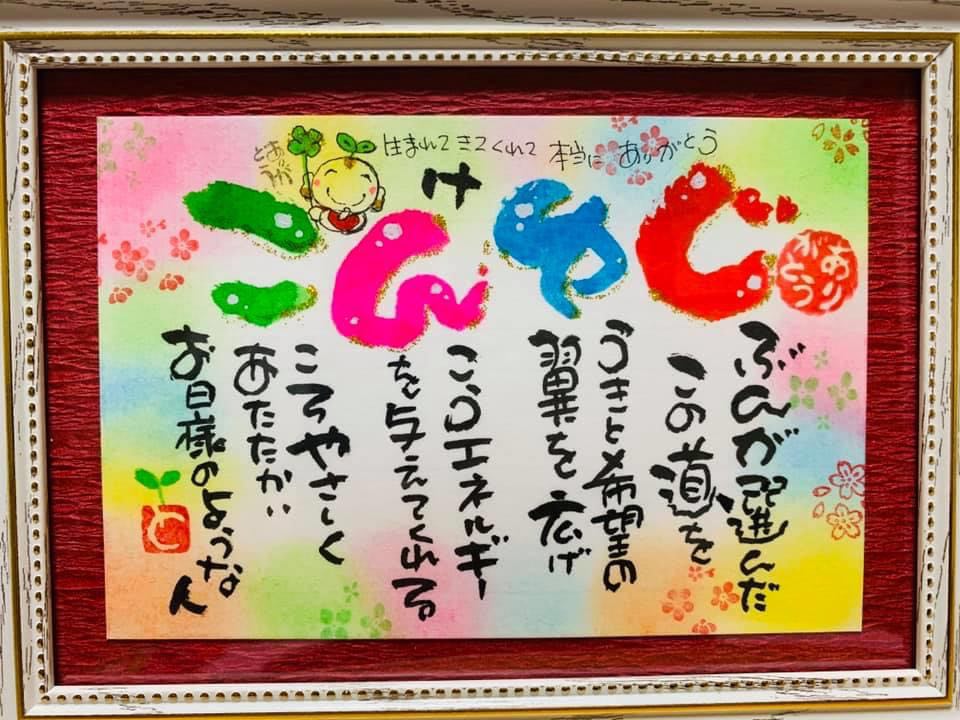 生まれてきてくれて 本当に ありがとう
ありがとう
じ
ぶんが選んだ
この道を
ゆ
うきと希望の
翼を広げ
け
ん
こうエネルギー
を与えてくれる
こ
ころやさしく
あたたかい
お日様のような人
ありがとう